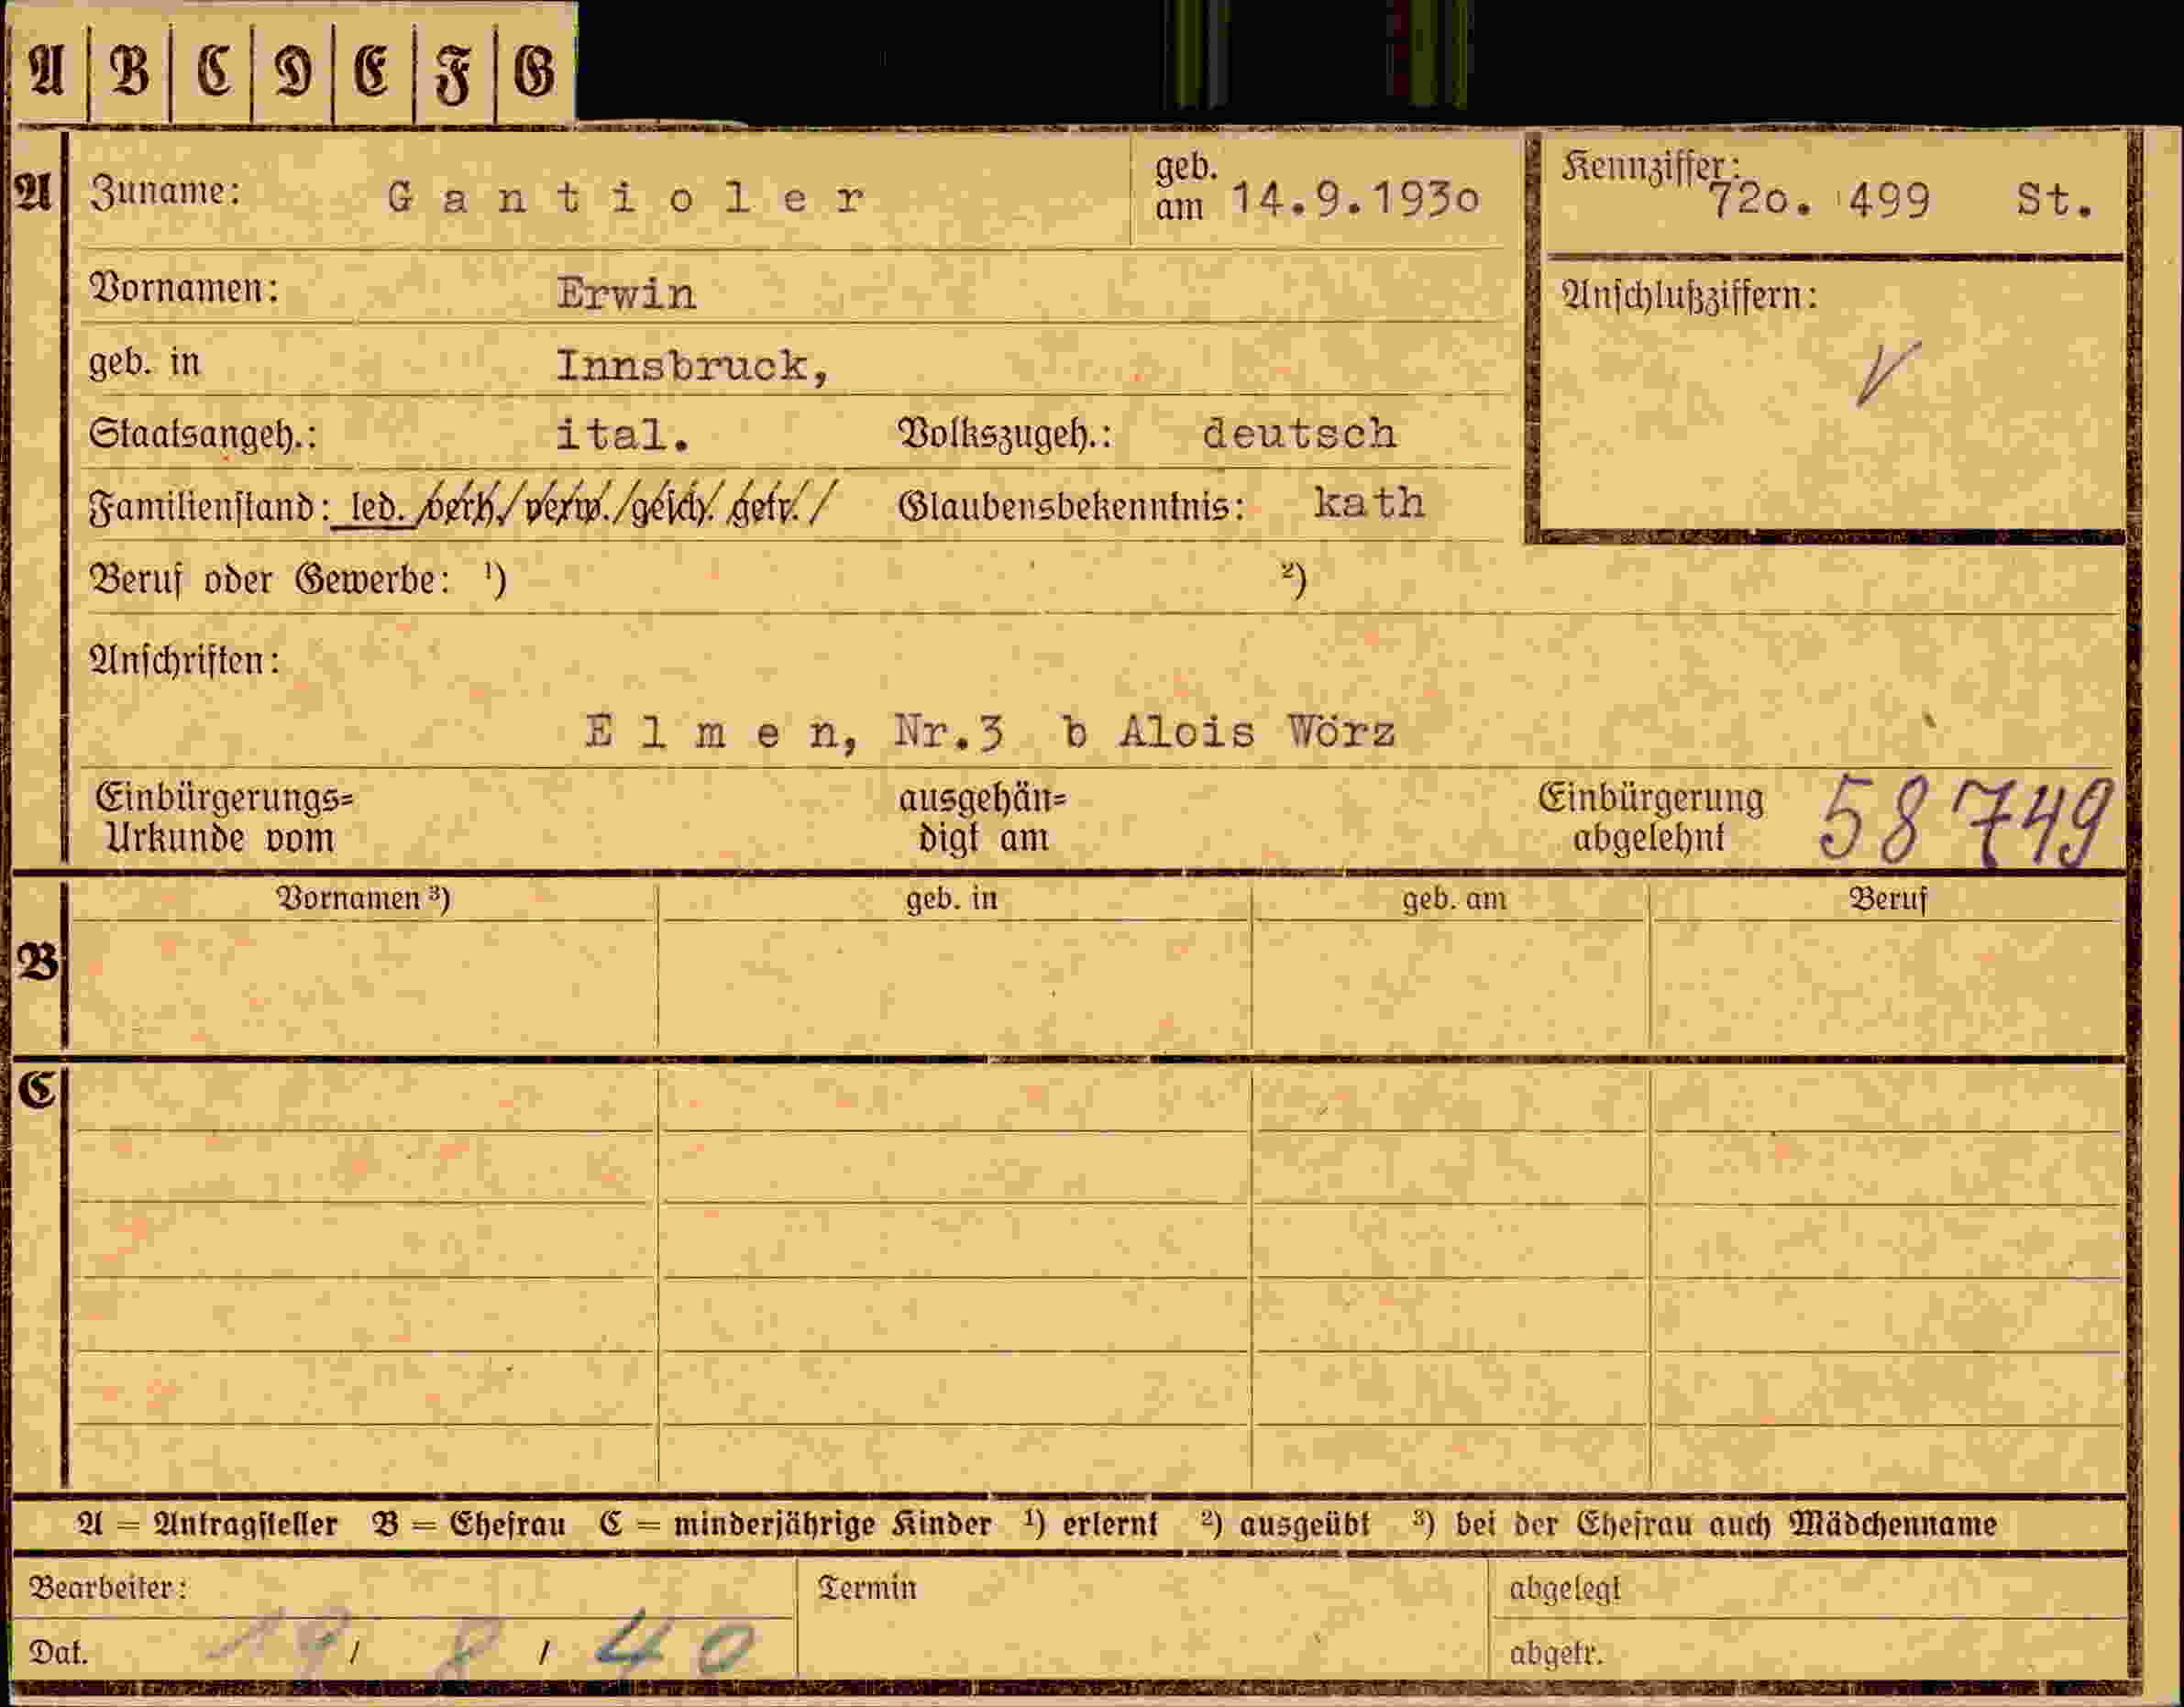 A B C D E F G
A Zuname: Gantioler geb. am 14.9.1930 Kennziffer: 720. 499 St.
Vornamen: Erwin
Anschlußziffern:
geb. in Innsbruck,
Staatsangeh.: ital. Volkszugeh.: deutsch
Familienstand: led. /verh./verw./gesch. getr./ Glaubensbekenntnis: kath
Beruf oder Gewerbe: ¹) ²)
Anschriften:
Elmen, Nr.3 b Alois Wörz
Einbürgerungs= Urkunde vom ausgehän= digt am Einbürgerung abgelehnt 58749
Vornamen ³) geb. in geb. am Beruf
B
C
A = Antragsteller B = Ehefrau C = minderjährige Kinder ¹) erlernt ²) ausgeübt ³) bei der Ehefrau auch Mädchenname
Bearbeiter: Termin abgelegt
Dat. 19 / 8 / 40 abgetr.